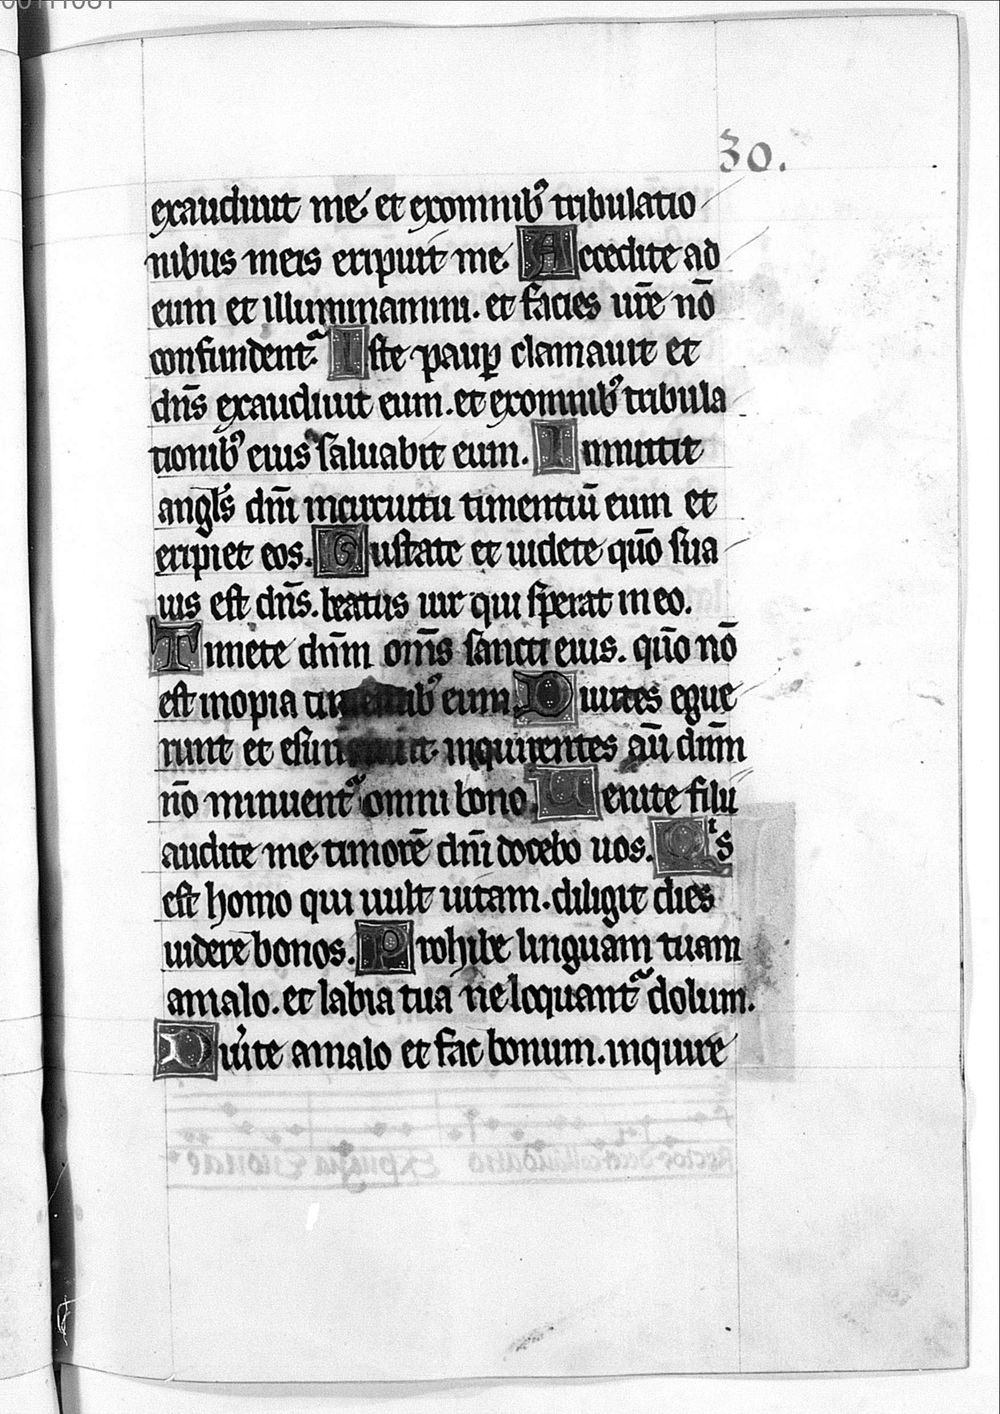 30.
exaudiuit me. et exomnib᷒ tribulatio
nibus meis eripuit me. Accedite ad
eum et illuminamini. et facies ur̄e nō
confundent᷑ Iste paup̲ clamauit et
dn̄s exaudiuit eum. et exomnib᷒ tribula
tionib᷒ eius saluabit eum. Inmittit
angl̄s dn̄i incircuitu timentiū eum et
eripiet eos. Gustate et uidete quō sua
uis est dn̄s. beatus uir qui sperat in eo.
Timete dn̄m om̄s sancti eius. quō nō
est inopia timentib᷒ eum. Diuites egue
runt et esurierunt. inquirentes aū dn̄m
nō minuent᷑ omni bono. Uenite filii
audite me. timorē dn̄i docebo uos. Qⁱs
est homo qui uult uitam. diligit dies
uidere bonos. Prohibe linguam tuam
amalo. et labia tua ne loquant᷑ dolum.
Diu̓te amalo et fac bonum. inquire